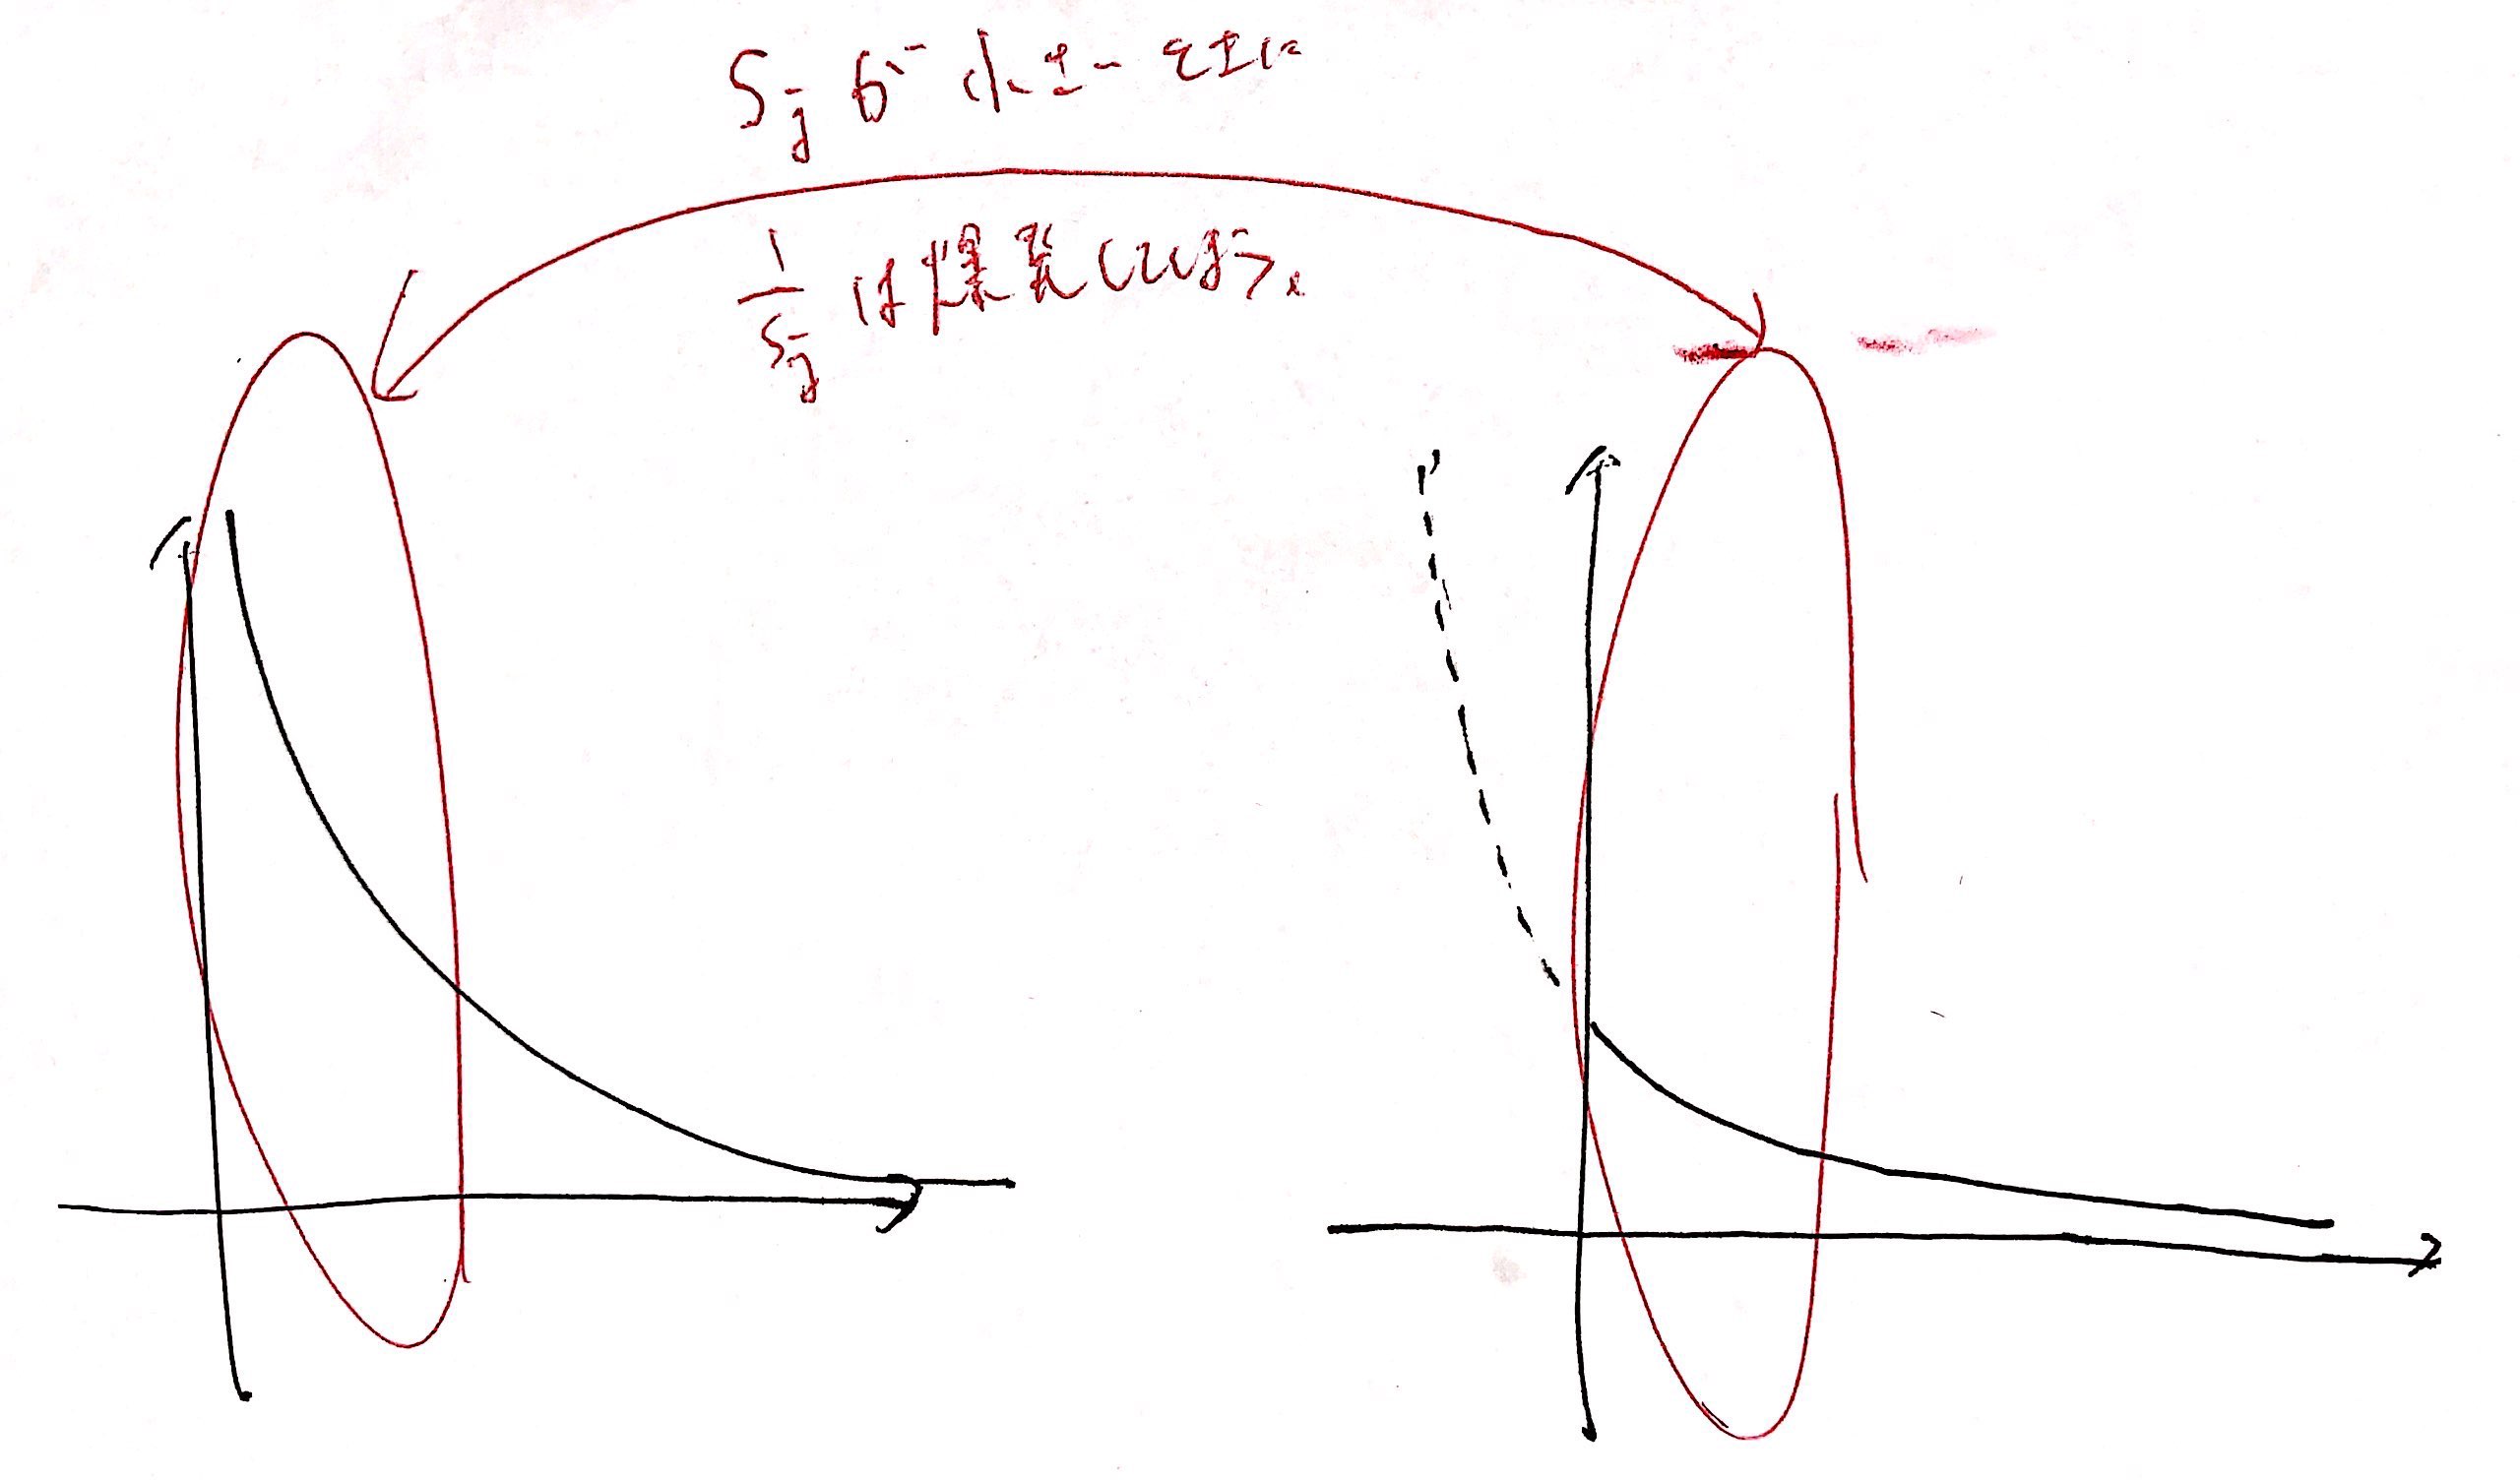 S_j が小さい ときに
1/S_j は爆発し